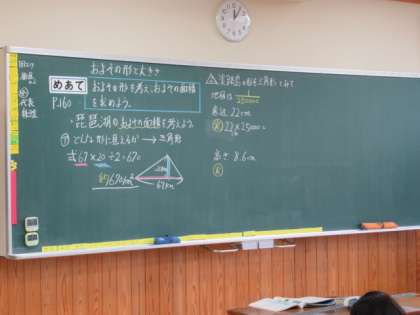 およその形と大きさ
めあて
およその形を考え、およその面積を求めよう。
P.160
・琵琶湖のおよその面積を考えよう。
⑦ どんな形に見えるか → 三角形
式 67×20÷2=670
約670km²
20km
67km
の形を三角形とみて
地図は 1/250000
底辺 22cm
22×250000=
高さ 8.6cm
代表